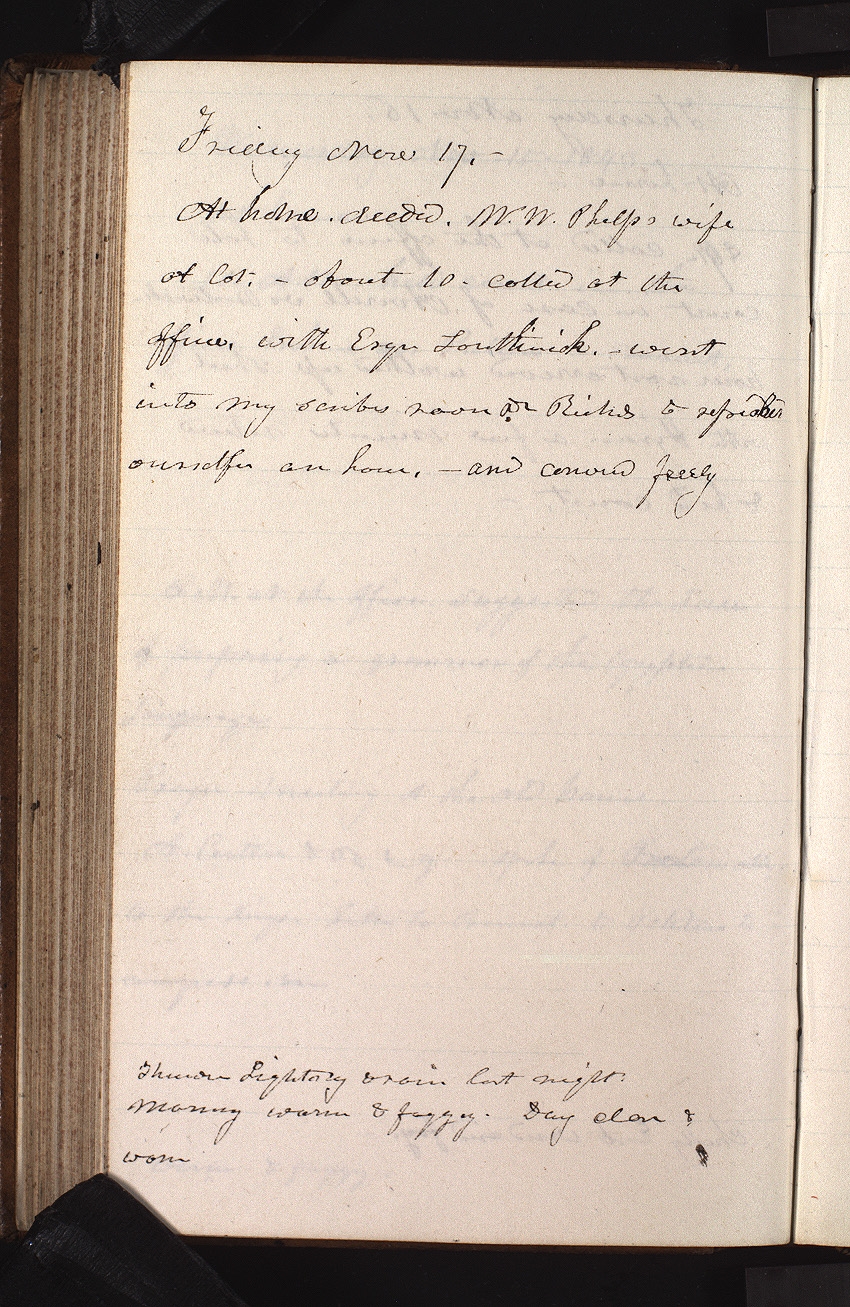 Friday Nove 17.-
At home. deeded. W. W. Phelps wife
a lot. - about 10 - called at the
office. with Esqr Southwick. - went
into my scribes room Dr Richds to
ourselfs an hour. - and convrsd freely
Thunder Lightnig & rain last night.
Morning warm & foggy. Day clear &
warm